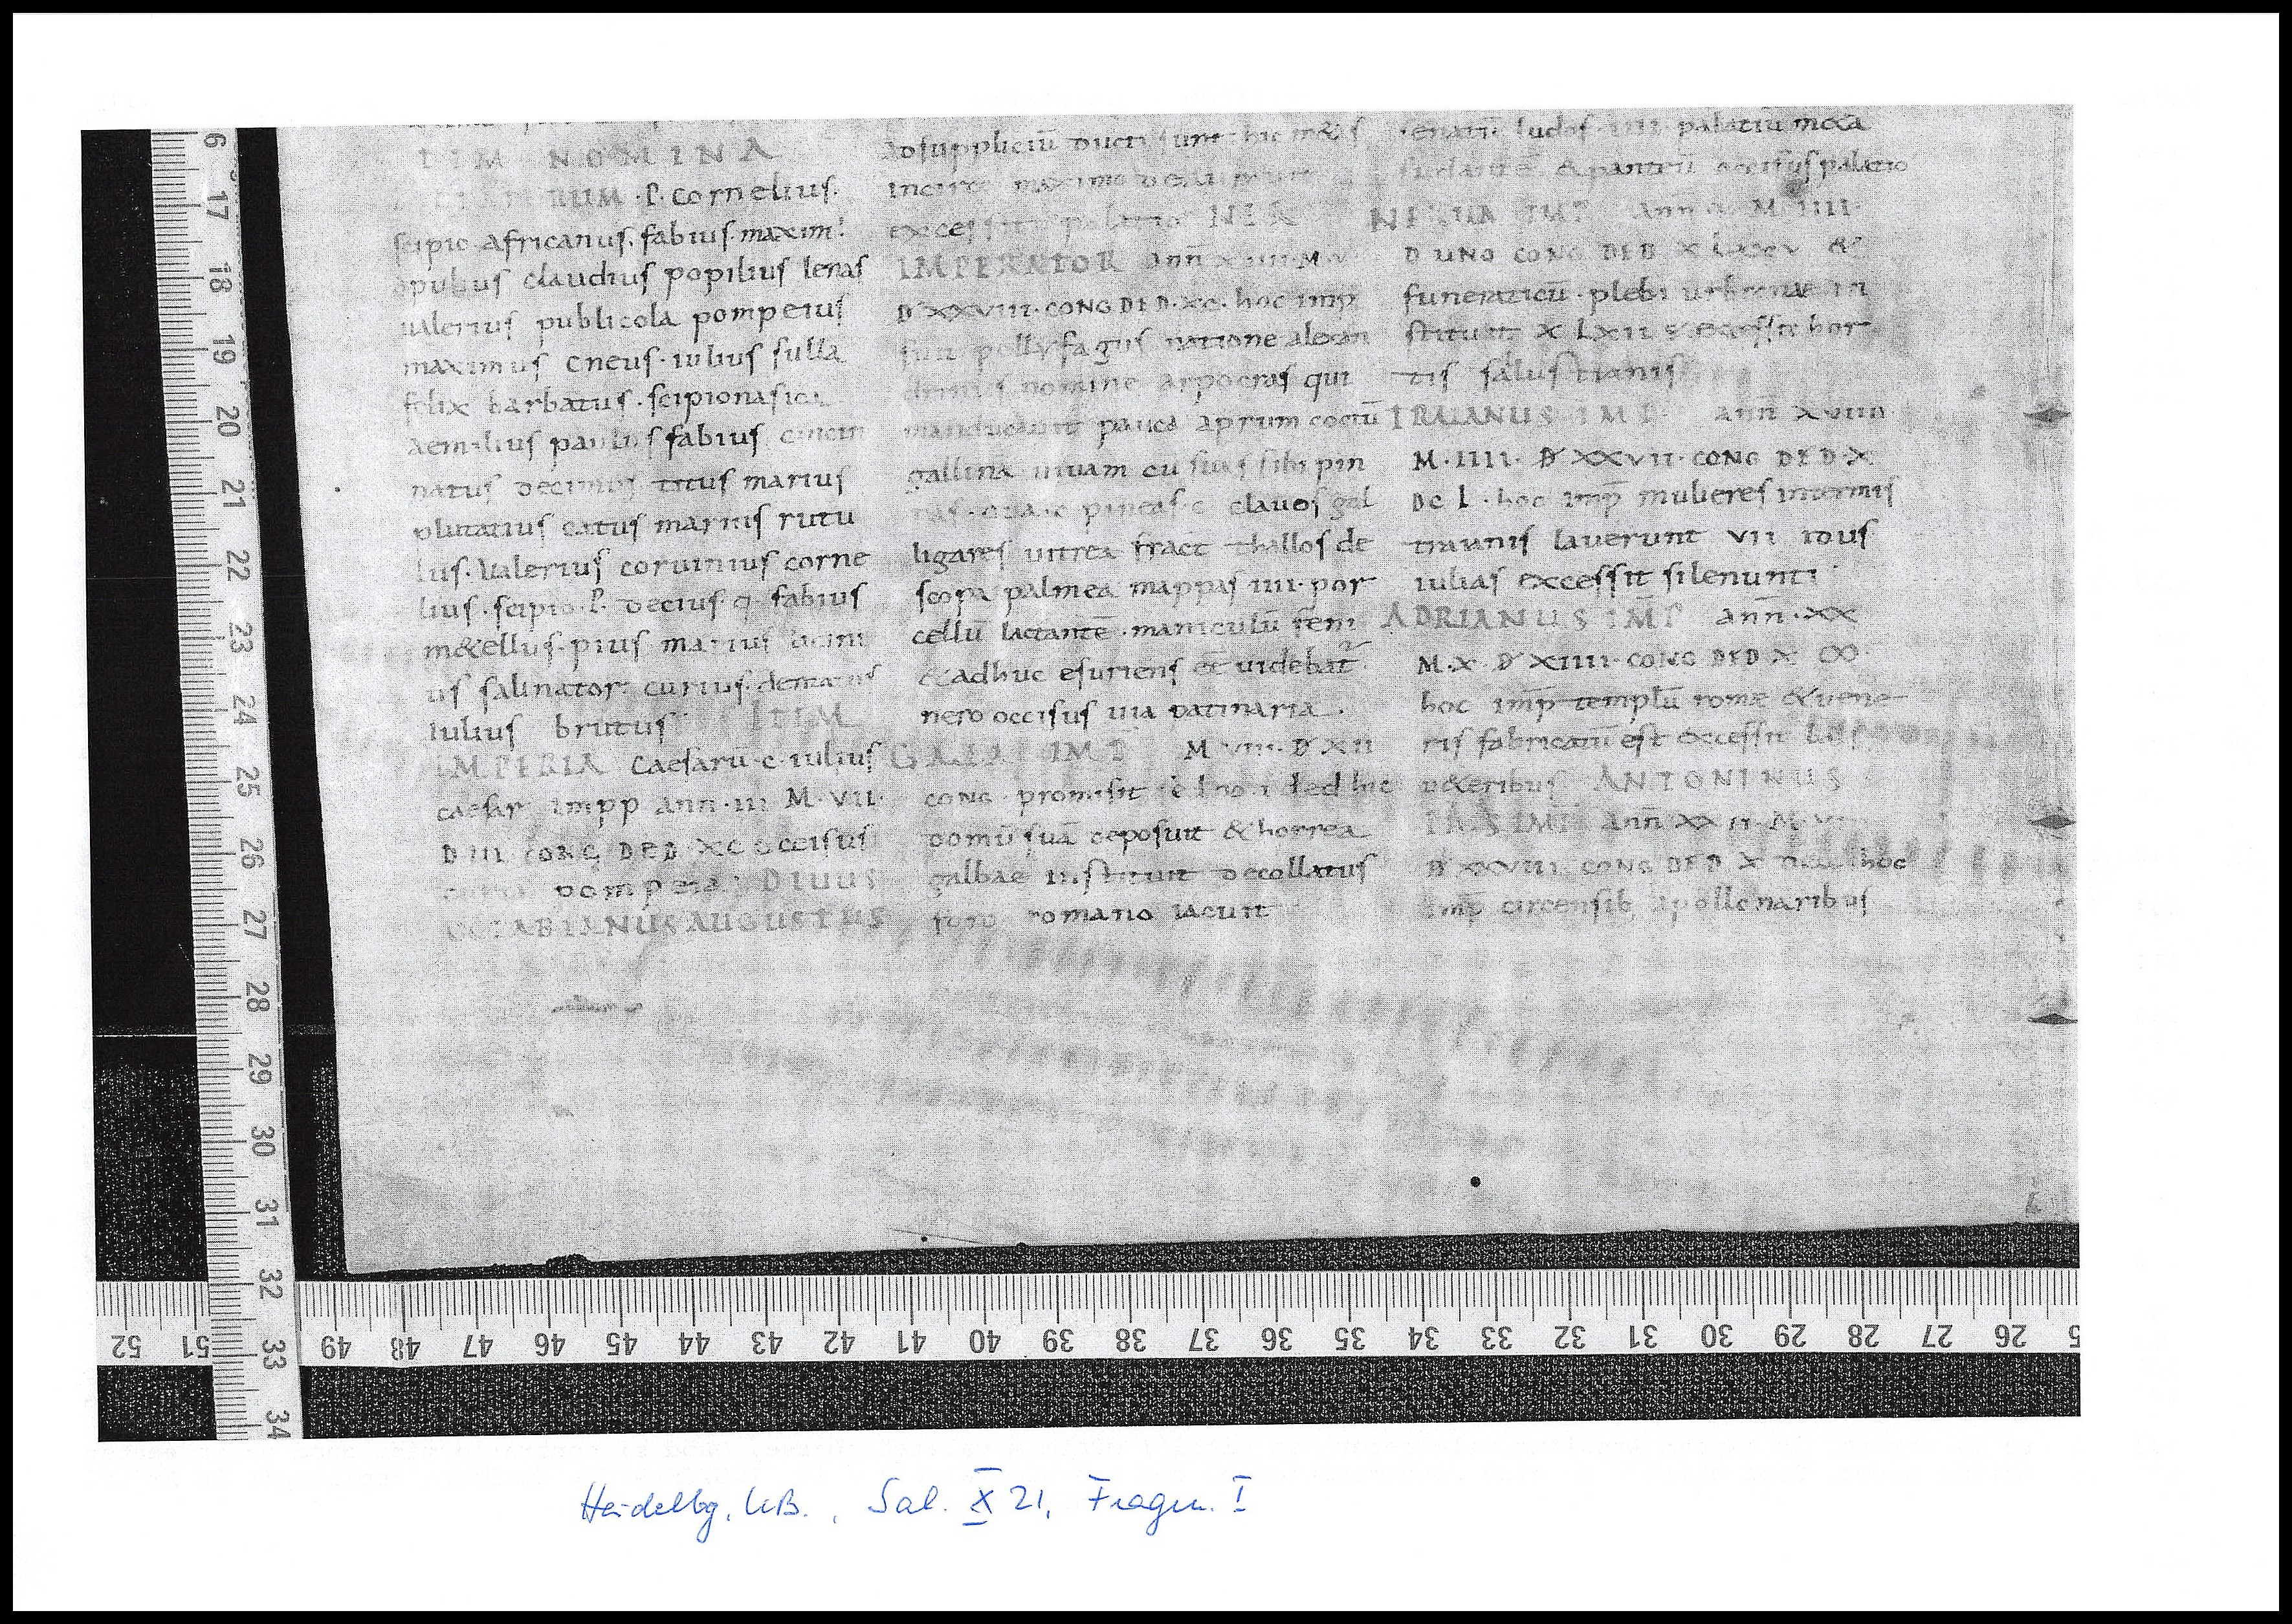 ITEM NOMINA
RUM · P. cornelius.
scipio africanus. fabius maxim'
opulius claudius popilius lenas
ualerius publicola pompeius
maximus cneus · iulius sulla
felix barbatus · scipionasica
aemilius paulus fabius cincin
natus decimus titus marius
plutatius catus marius rutu
lus. Ualerius coruinius corne
lius · scipio · P. decius · q. fabius
m&ellus · pius marius
us salinator curius dentatus
iulius brutus ITEM
IMPERIA caesarū · c · iulius
caesar impp ann · iii M · VII ·
D III CONG DED XC occisus
pompeia DIUUS
OCTABIANUS AUGUSTUS
adsuppliciū ducti sunt hic m&
excessit palatio NERO
IMPERATOR ann XIIII M V
D XXVIII · CONG DED · XC · hoc imp̄
fuit pollyfagus natione alexan
drinus nomine arpocras qui
manducauit pauca aprum coctū
gallina uiuam cū suas sibi pin
nas · oua · c pineas · c clauos gal
ligares uitrea fract thallos de
scopa palmea mappas iiii · por
cellū lactantē · maniculū feni
& adhuc esuriens ee uidebat
nero occisus uia patinaria
GALBA IMP M VIII · D XII
CONG promisit se non ded hic
domū suā deposuit & horrea
galbae instituit decollatus
foro romano iacuit
ludos · palatiū mica
&panteū occisus palatio
NERUA IMP ann · M IIII ·
D UNO CONG DED X LXXV &
funeraticū · plebi urbanae in
stituit X LXII s excessit hor
tis salustianis
TRAIANUS IMP ann XVIIII
M · IIII · D XXVII · CONG DED X
DC L · hoc imp̄ mulieres intermis
tiranis lauerunt VII idus
iulias excessit silenunti
ADRIANUS IMP ann · XX
M · X · D XIIII · CONG DED X ∞
hoc imp̄ templū rome & uene
ris fabricatū est excessit
u&eribus ANTONINUS
IMP ann XX II · M
D XXVIII CONG DED X hoc
imp̄ circensib, apollonaribus
6 17 18 19 20 21 22 23 24 25 26 27 28 29 30 31 32 33 34
52 51 49 48 47 46 45 44 43 42 41 40 39 38 37 36 35 34 33 32 31 30 29 28 27 26
Heidelbg, UB., Sal. X 21, Fragm. I